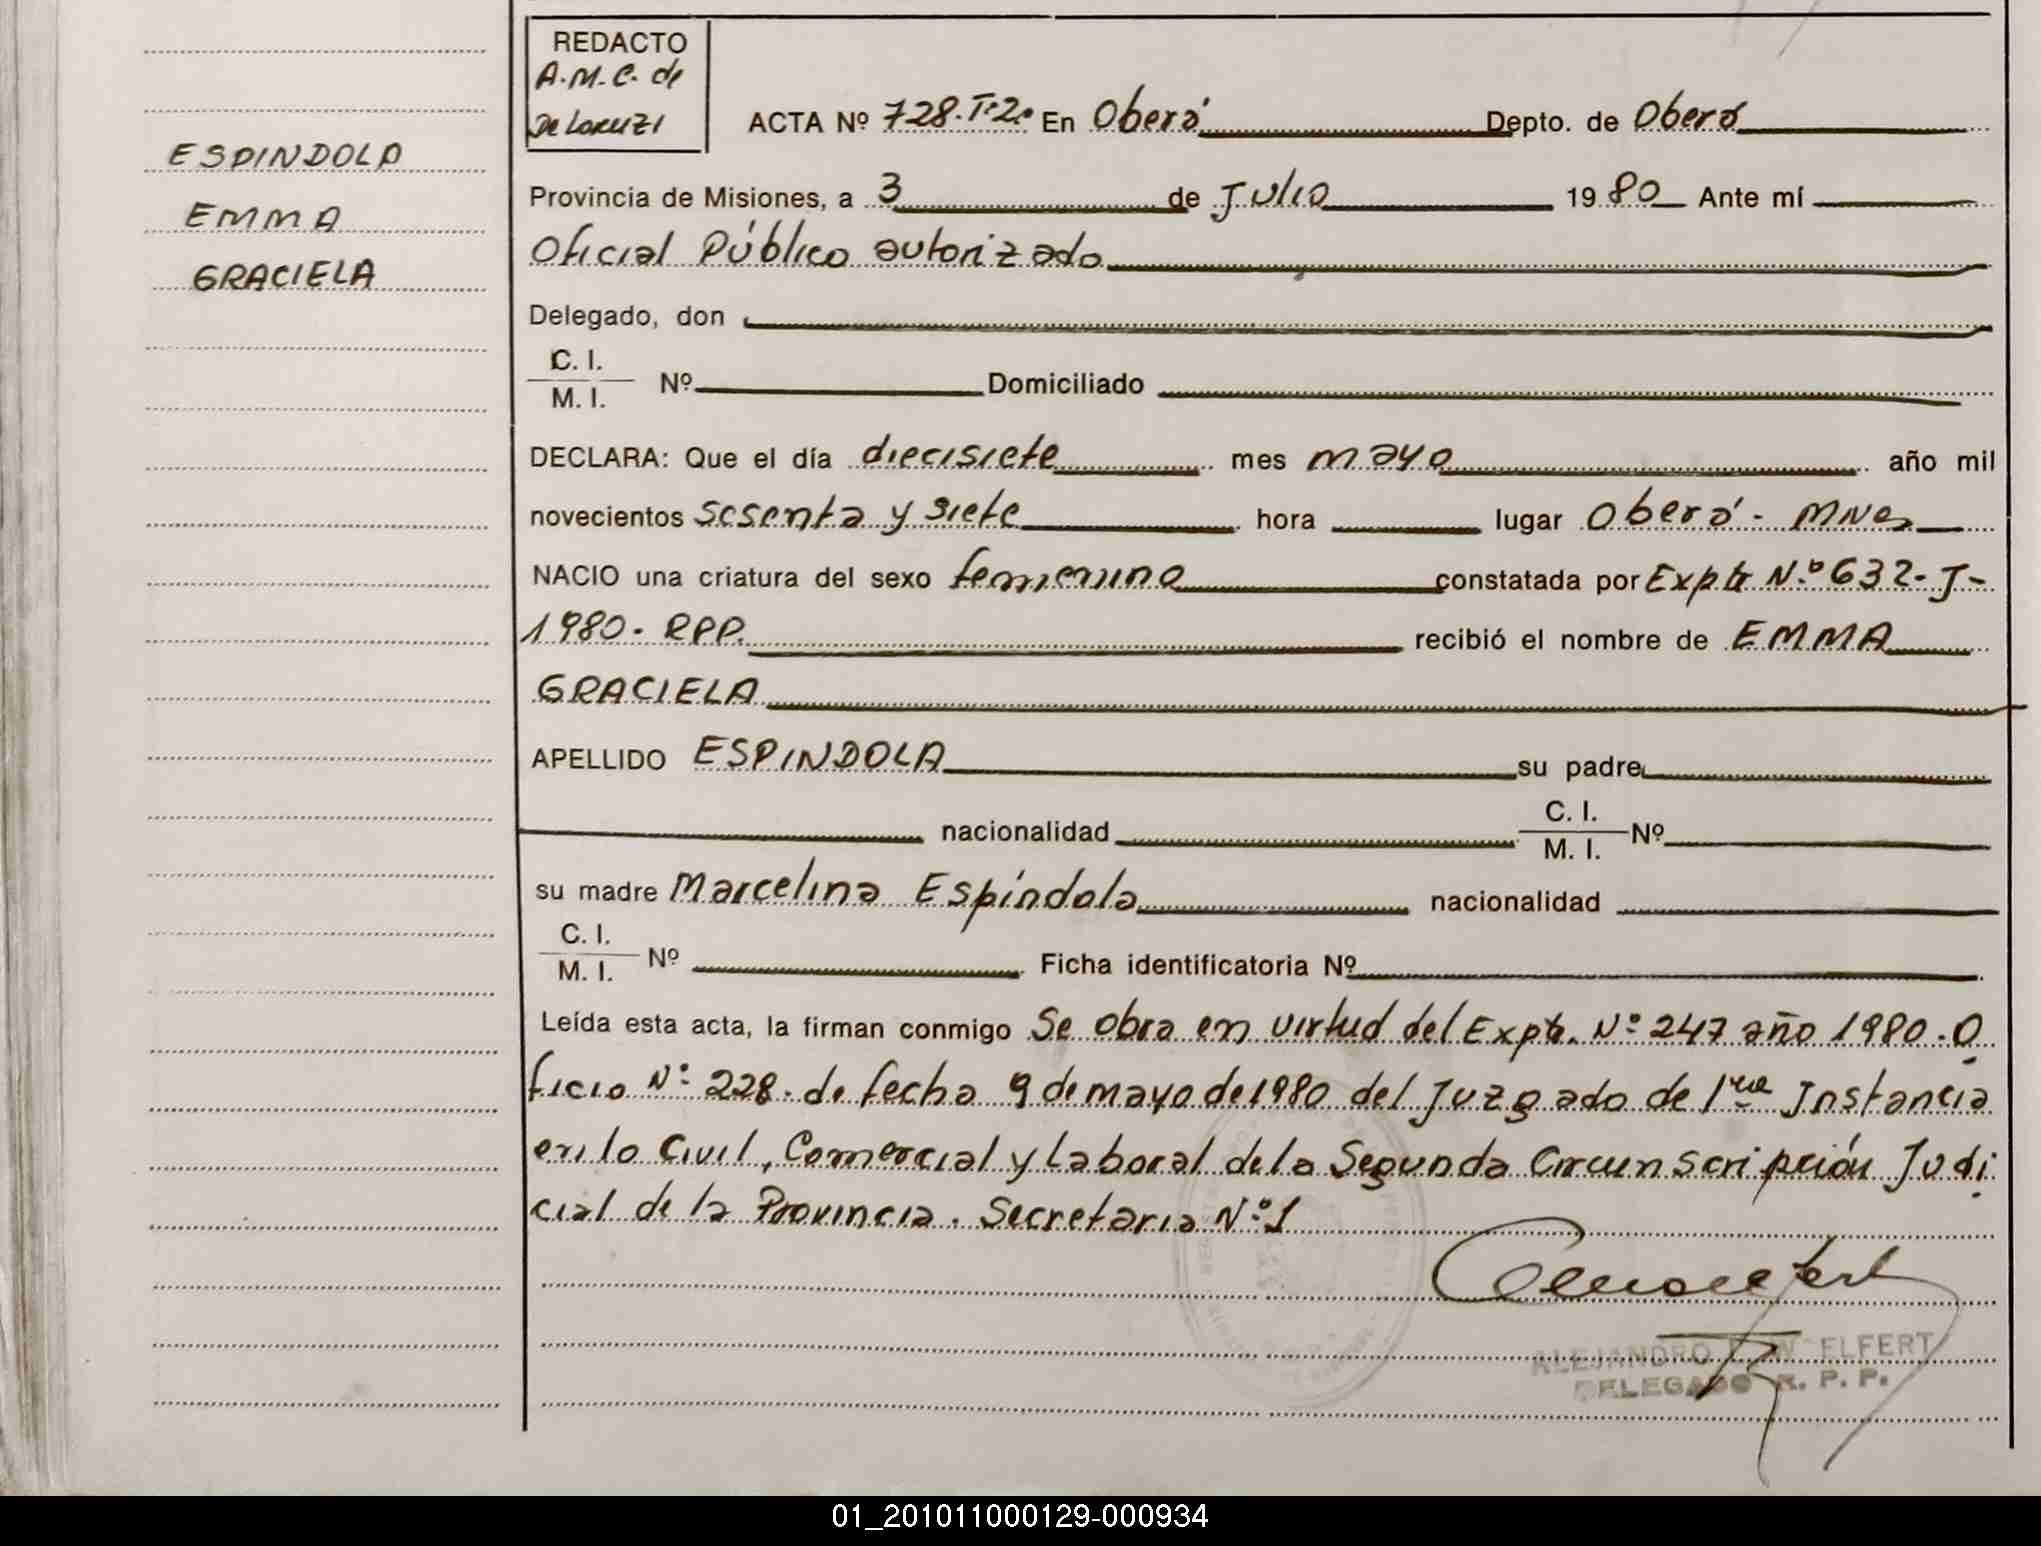 REDACTO
A.M.C. de
De Loruzi
ESPINDOLA
EMMA
GRACIELA
ACTA Nº 728.Tº2º En Oberá Depto. de Oberá
Provincia de Misiones, a 3 de Julio 1980 Ante mí
Oficial Público autorizado
Delegado, don
C. I.
M. I. Nº Domiciliado
DECLARA: Que el día diecisiete mes mayo año mil
novecientos sesenta y siete hora lugar Oberá - Mnes
NACIO una criatura del sexo femenino constatada por Expte Nº 632-J-
1980- RPP. recibió el nombre de EMMA
GRACIELA
APELLIDO ESPINDOLA su padre
nacionalidad C. I.
M. I. Nº
su madre Marcelina Espíndola nacionalidad
C. I.
M. I. Nº Ficha identificatoria Nº
Leída esta acta, la firman conmigo Se obra en virtud del Expte. Nº 247 año 1980. O
ficio Nº 228. de fecha 9 de mayo de 1980 del Juzgado de 1ra Instancia
en lo Civil, Comercial y Laboral de la Segunda Circunscripción Judi
cial de la Provincia. Secretaria Nº 1
ALEJANDRO W ELFERT
DELEGADO R. P. P.
01_201011000129-000934